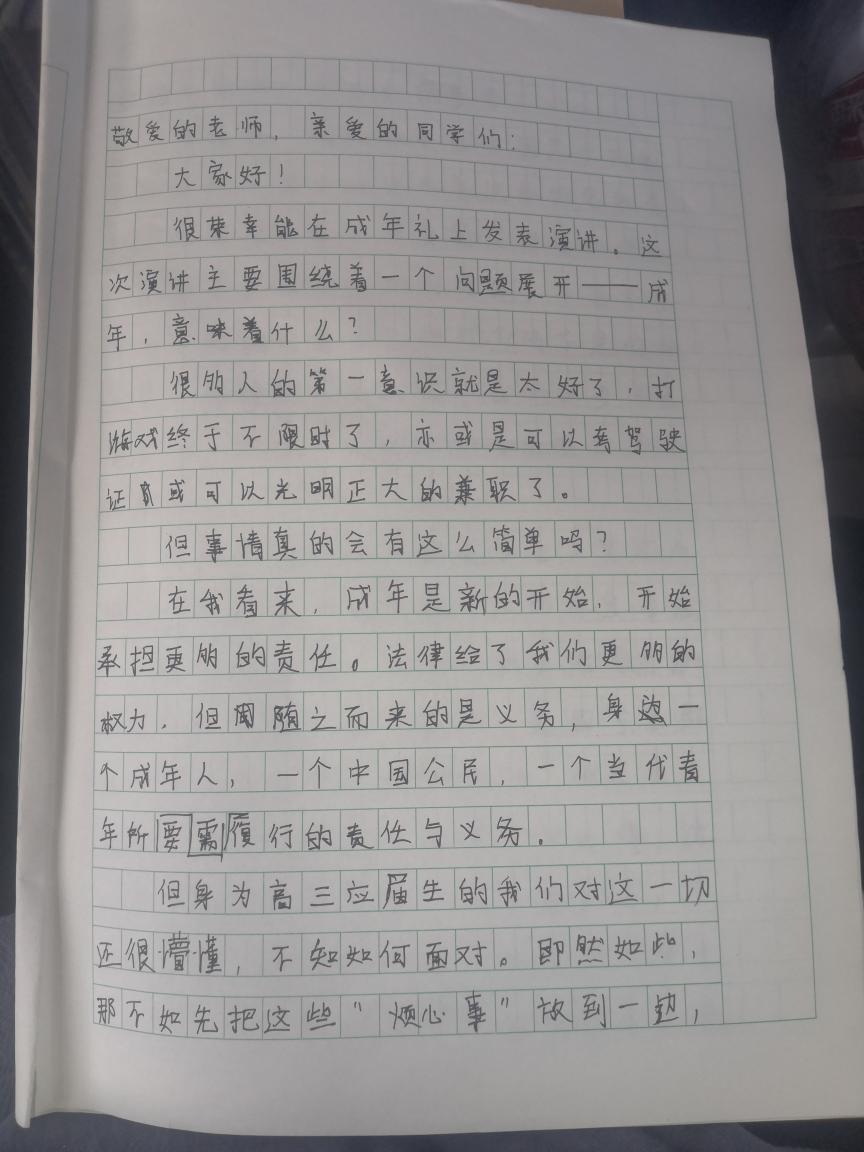 敬爱的老师，亲爱的同学们：
大家好！
很荣幸能在成年礼上发表演讲。这
次演讲主要围绕着一个问题展开——成
年，意味着什么？
很多人的第一意识就是太好了，打
游戏终于不限时了，亦或是可以考驾驶
证或可以光明正大的兼职了。
但事情真的会有这么简单吗？
在我看来，成年是新的开始，开始
承担更多的责任。法律给了我们更多的
权力，但随之而来的是义务，身一
个成年人，一个中国公民，一个当代青
年所要需履行的责任与义务。
但身为高三应届生的我们对这一切
还很懵懂，不知如何面对。即然如此，
那不如先把这些“烦心事”放到一边，